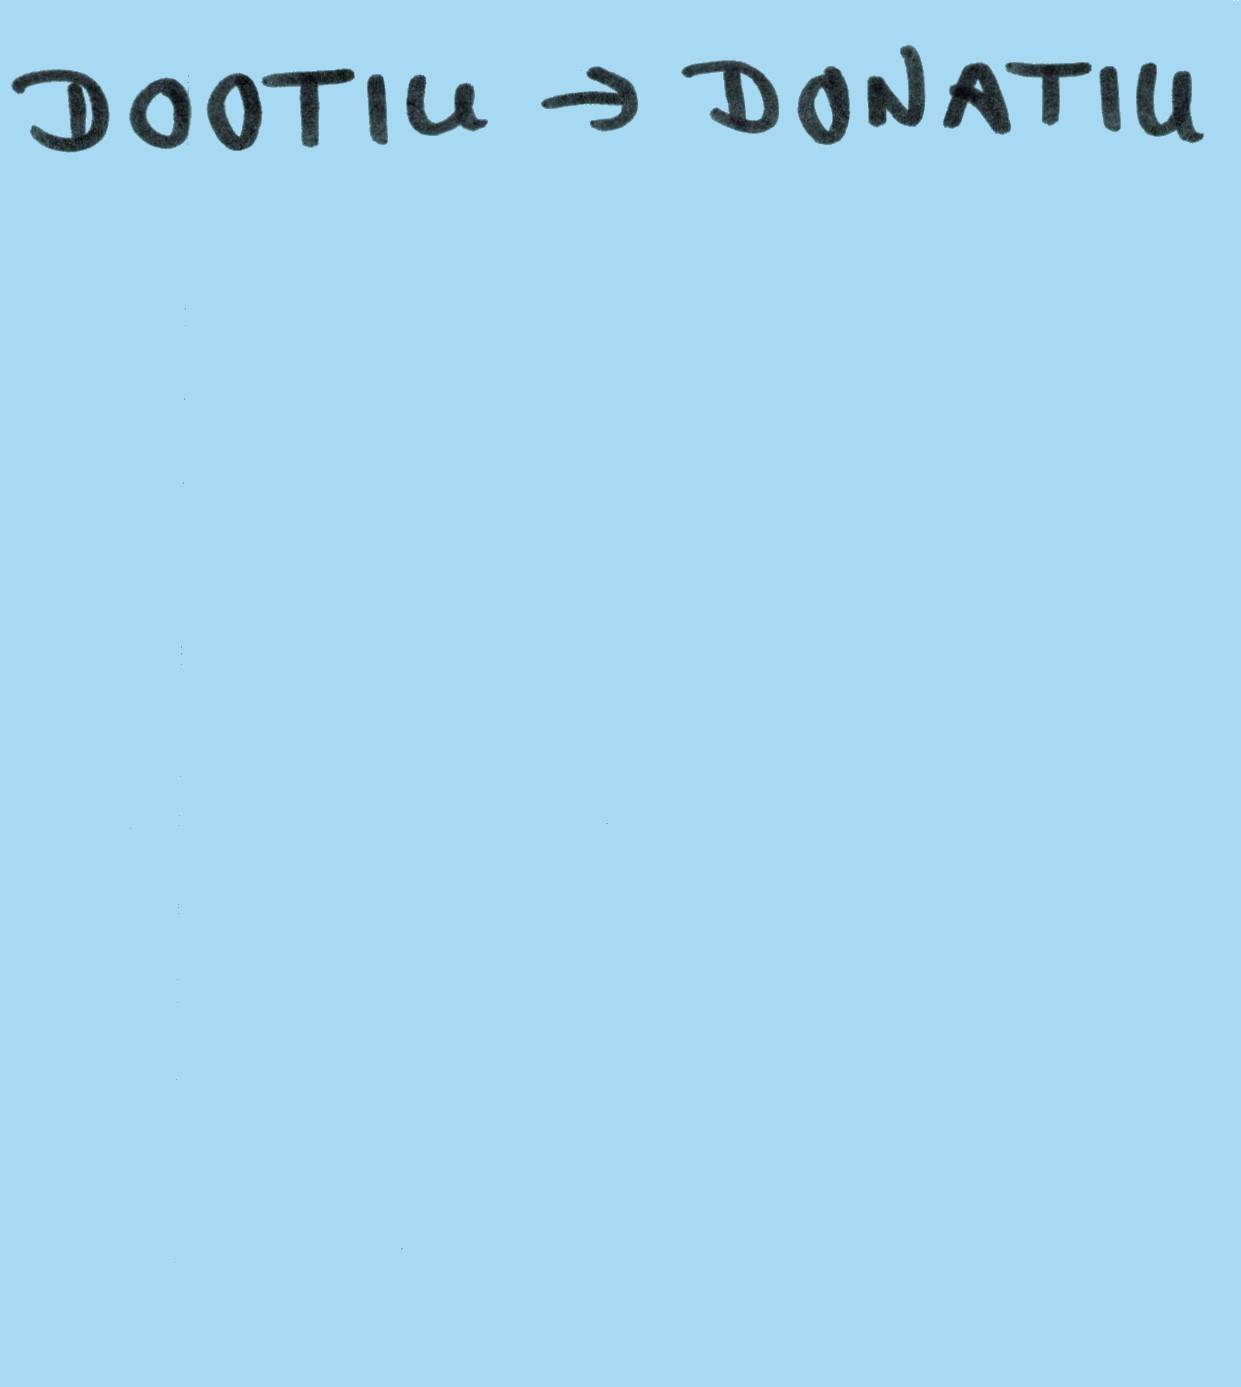 DOOTIU → DONATIU